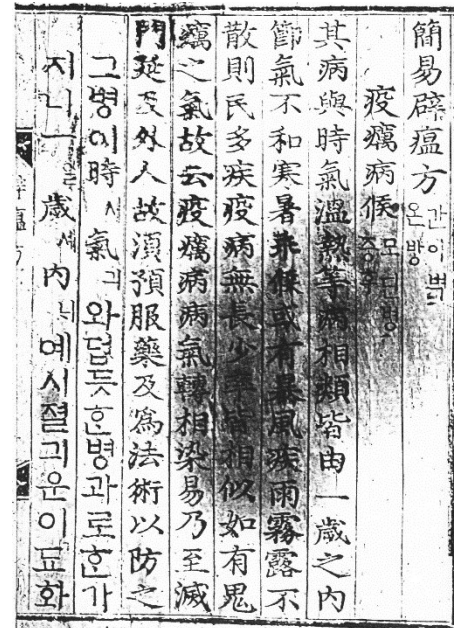 簡易辟瘟方 간이벽온방
疫癘病候 모딘병증후
其病與時氣溫熱等病相類皆由一歲之內
節氣不和寒暑乖候或有暴風疾雨霧露不
散則民多疾疫病無長少率皆相似如有鬼
癘之氣故云疫癘病病氣轉相染易乃至滅
門延及外人故須預服藥及爲法術以防之
그병이時시氣긔와덥듯ᄒᆞᆫ병과로ᄒᆞᆫ가
지니一歲셰內ᄂᆡ예시졀긔운이됴화
辟瘟方